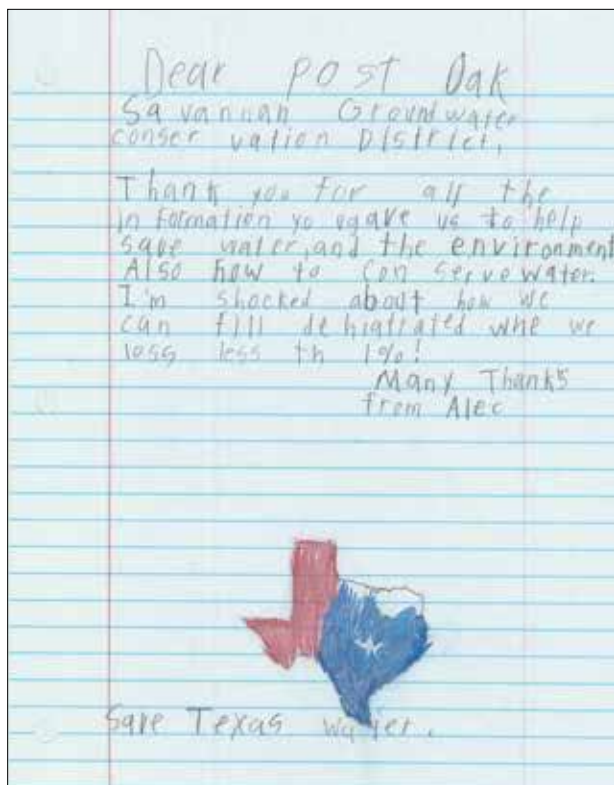 Dear post Oak
Savannah Groundwater
conser vation District,
Thank you for all the
information yo ugave us to help
save water, and the environment
Also how to con serve water.
I'm shocked about how we
can fill dehigtrated whe we
loss less th 1%!
Many Thanks
from Alec
Save Texas water.